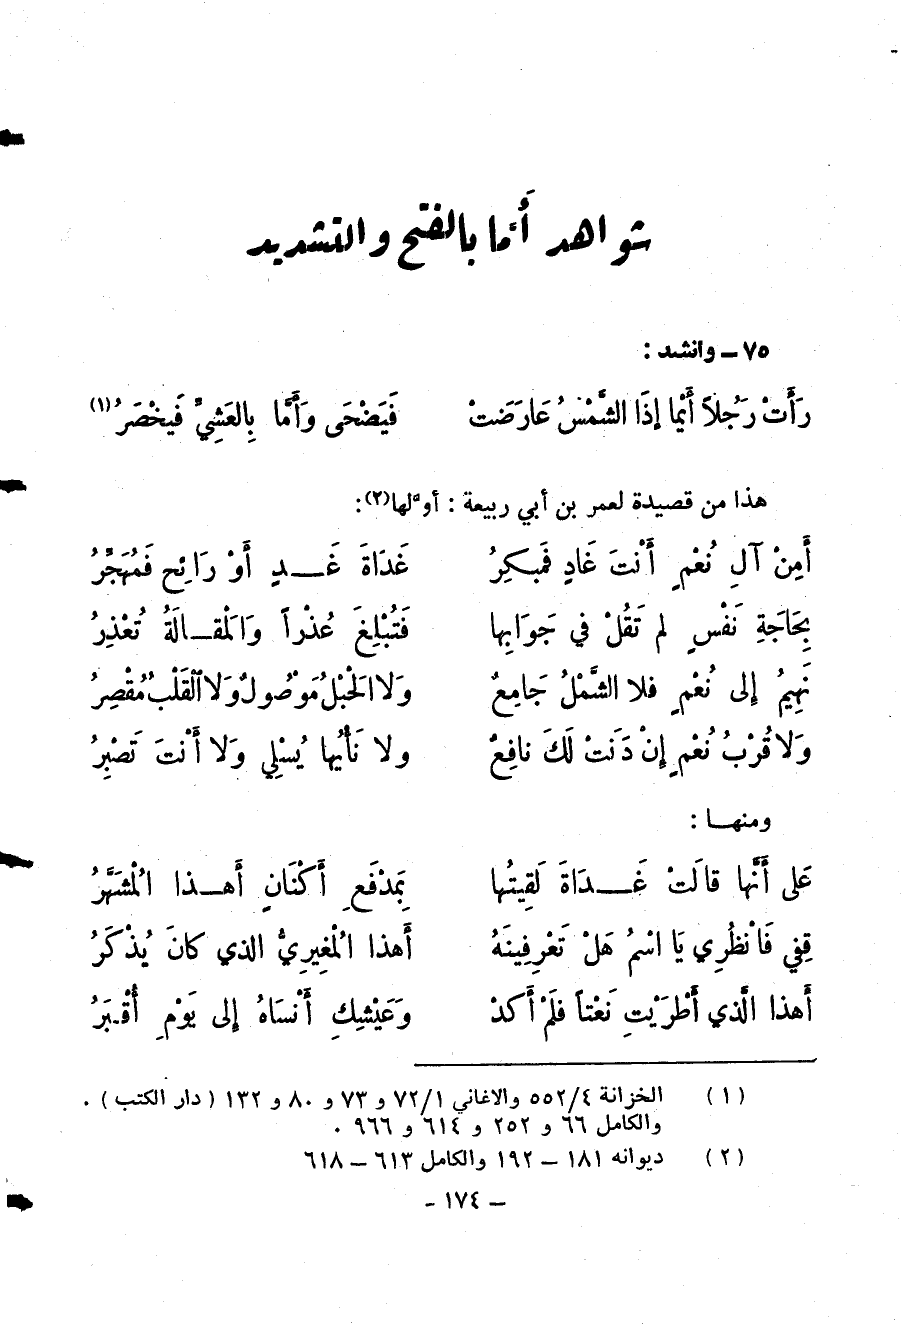 شواهد أمّا بالفتح والتشديد
٧٥ – وأنشد :
رَأَتْ رَجُلاً أَيْما إذَا الشَّمْسُ عَارَضَتْ فَيَضْحَى وَأَمَّا بِالعَشِيِّ فَيَخْصَرُ(١)
هذا من قصيدة لعمر بن أبي ربيعة : أوّلها(٢):
أَمِنْ آلِ نُعْمٍ أَنْتَ غَادٍ فَمبكِرُ غَدَاةَ غَـــدٍ أَوْ رَائِح فَمُهَجِّرُ
بِحَاجَةِ نَفْسٍ لم تَقُلْ في جَوَابِها فَتُبْلِغَ عُذْراً وَالمْقـالَةُ تُعْذِرُ
نَهِيمُ إلى نُعْمٍ فلا الشَّمْلُ جَامِعٌ وَلا الَحْبْلُ مَوْصُولٌ وَلا اَلْقَلْبُ مُقْصِرُ
وَلا قُرْبُ نُعْمٍ إنْ دَنَتْ لَكَ نافِعٌ ولا نَأْيُها يُسْلِي وَلا أَنْتَ تَصْبِرُ
ومنهــا :
عَلى أَنَّها قالَتْ غَـــدَاةَ لَقِيتُها بَمِدْفَعِ أَكْنَانٍ أَهــذا الْمُشَهَّرُ
قِفي فَانْظُرِي يَا اسْمُ هَلْ تَعْرِفِينَهُ أَهذا الْمُغِيرِيُّ الذي كانَ يُذْكَرُ
أَهذا الَّذي أَطْرَيْتِ نَعْتاً فلَمْ أَكَدْ وَعَيْشِكِ أَنْسَاهُ إلى يَوْمِ أُقْـبَرُ
(١) الخزانة ٥٥٢/٤ والاغاني ٧٢/١ و ٧٣ و ٨٠ و ١٣٢ ( دار الكتب ) .
والكامل ٦٦ و ٢٥٢ و ٦١٤ و ٩٦٦ .
(٢) ديوانه ١٨١ – ١٩٢ والكامل ٦١٣ – ٦١٨
– ١٧٤ -